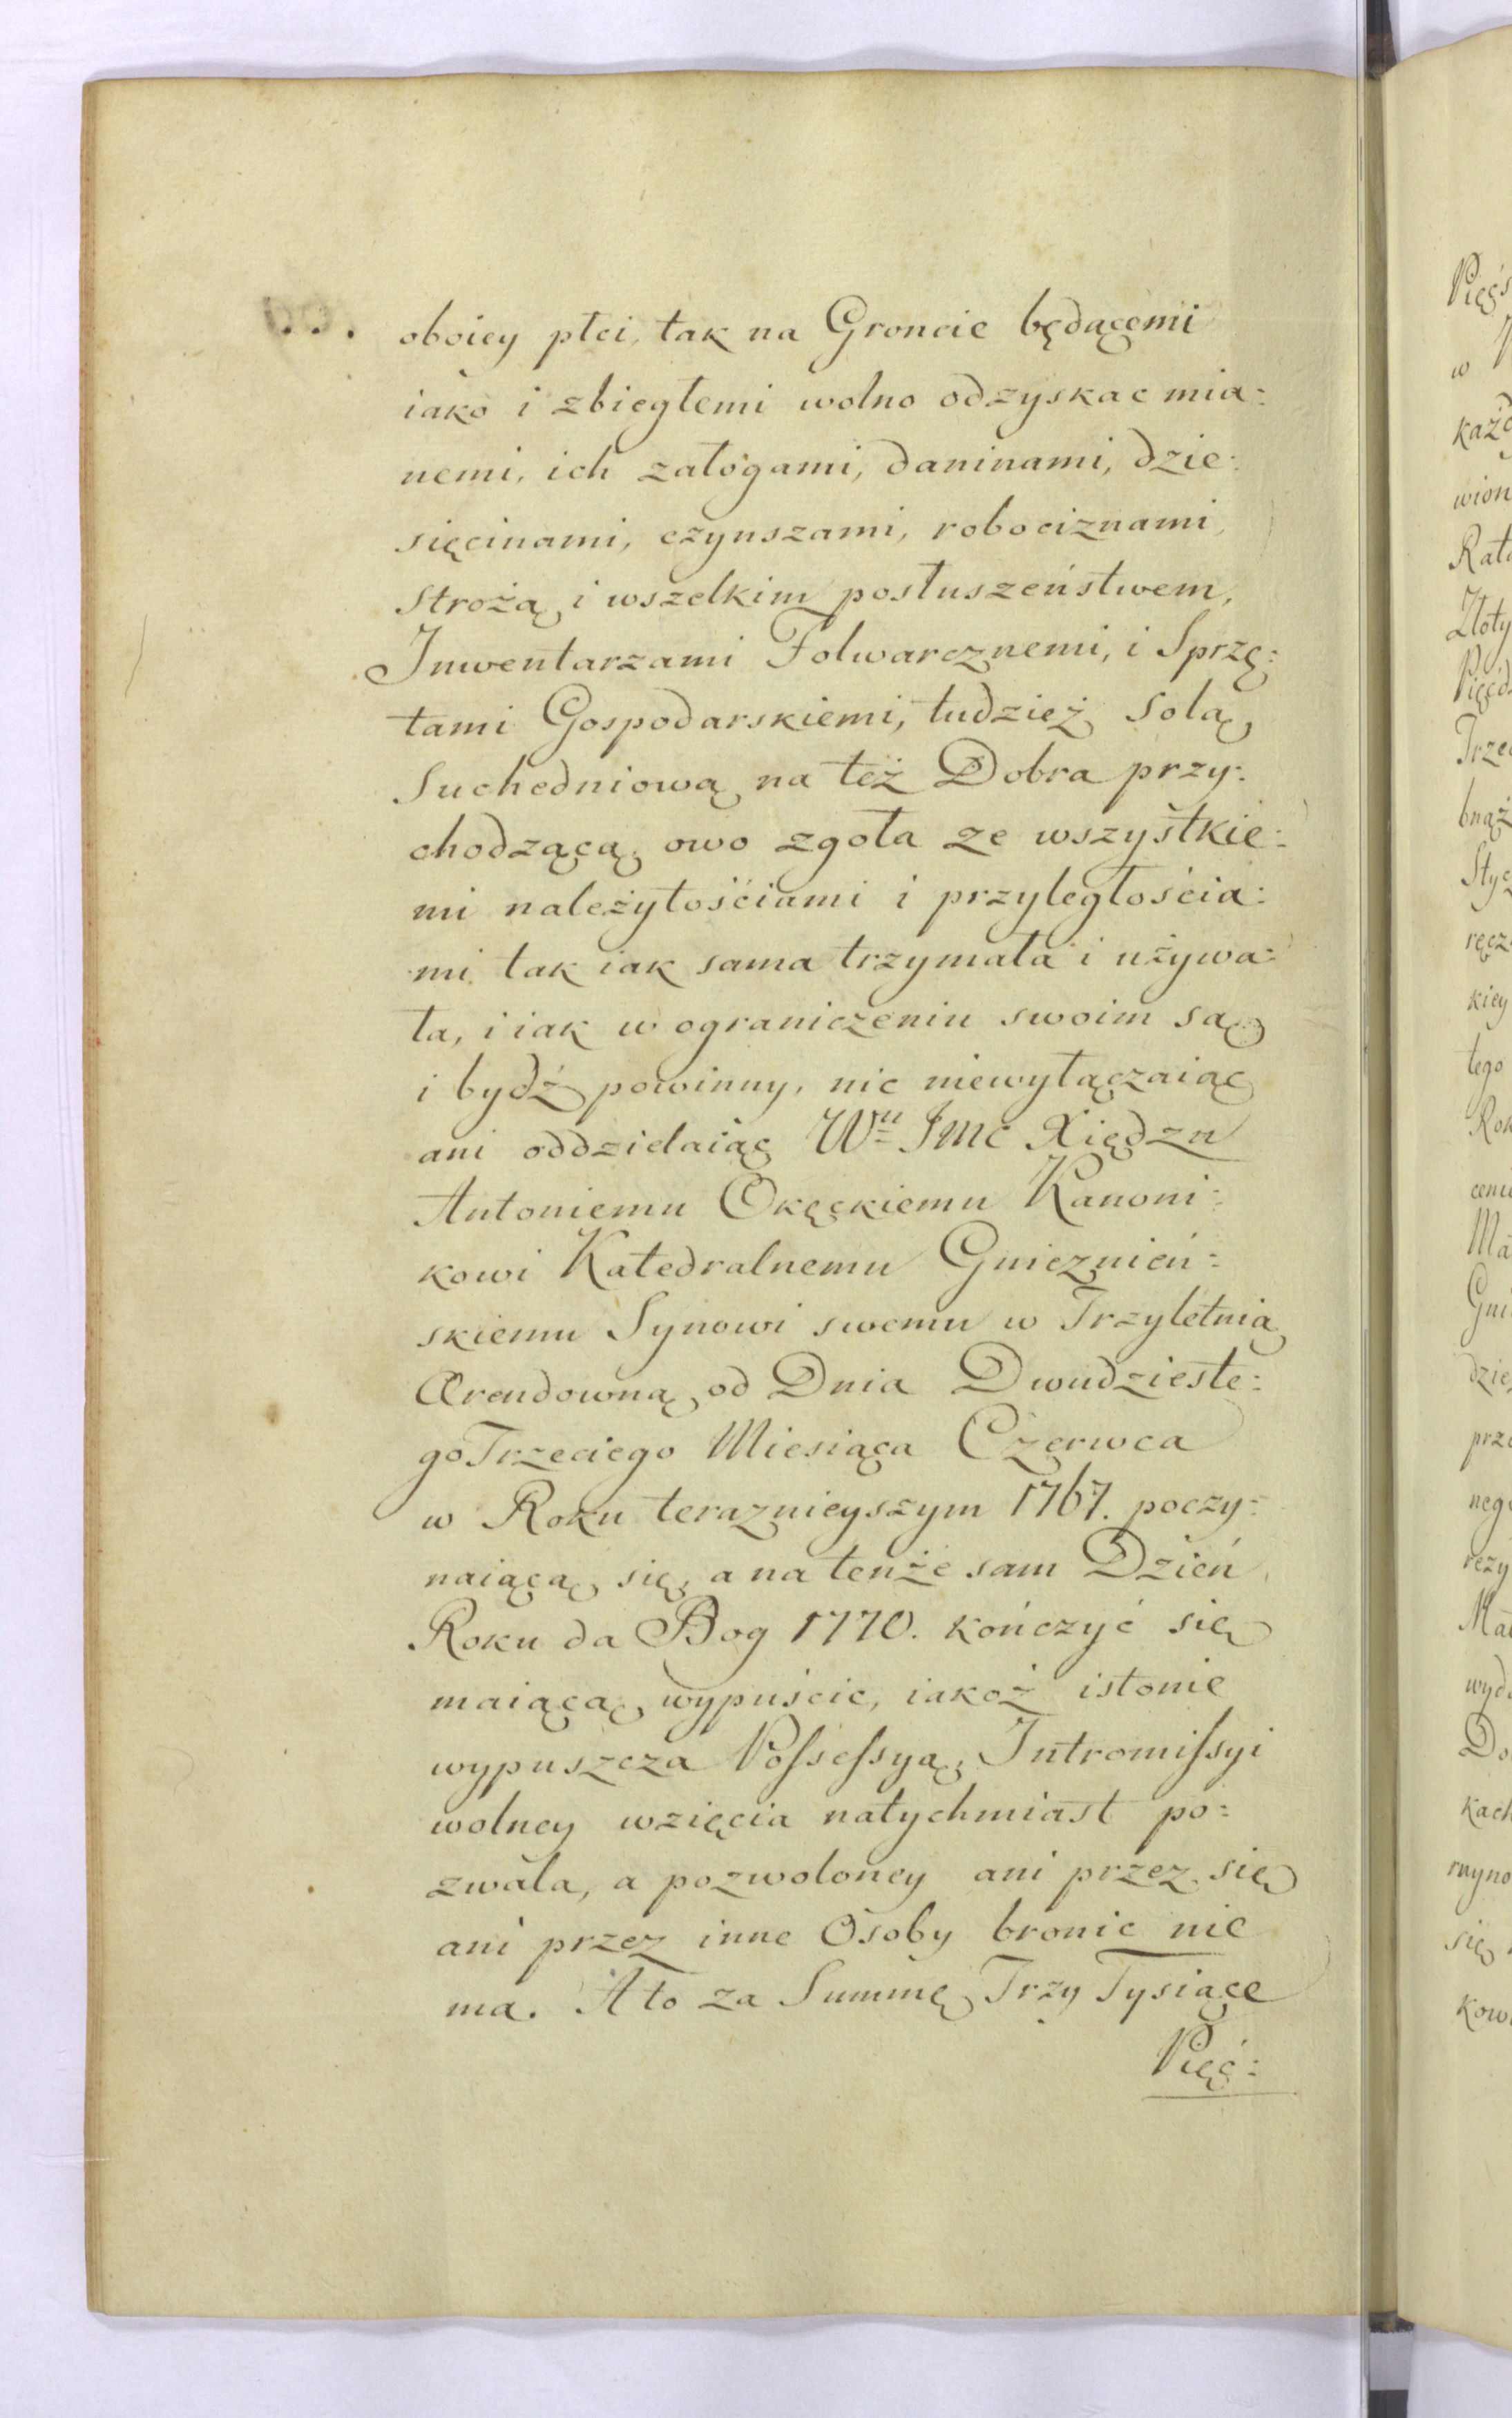 oboiey płci, tak na Groncie będącemi
iako i zbiegłemi wolno odzyskac mia:
nemi, ich załogami, daninami, dzie:
sięcinami, czynszami, robociznami,
Strożą i wszelkim posłuszeństwem,
Inwentarzami Folwarcznemi, i Sprzę:
tami Gospodarskiemi, tudzież Solą
Suchedniową na też Dobra przy:
chodzącą, owo zgoła ze wszystkie:
mi należytościami i przyległościa:
mi tak iak sama trzymała i używa:
ła, i iak w ograniczeniu swoim są
i bydź powinny, nic niewyłączaiąc
ani oddzielaiąc Wu Jmc Xiędzu
Antoniemu Okęckiemu Kanoni:
kowi Katedralnemu Gnieznień:
skiemu Synowi swemu w Trzyletnią
Arendowną od Dnia Dwudzieste:
go Trzeciego Miesiąca Czerwca
w Roku teraznieyszym 1767. poczy:
naiącą się, a na tenże sam Dzień
Roku da Bog 1770. kończyć się
maiącą wypuścic, iakoż istonie
wypuszcza Possessyą, Intromissyi
wolney wzięcia natychmiast po:
zwala, a pozwoloney ani przez się
ani przez inne Osoby bronic nie
ma. A to za Summę Trzy Tysiące
Pięć:
Pięćs
w
każd
wion
Rata
Złoty
Pięćd
Trze
bnąż
Styc
ręcz
kiey
tego
Rok
Ma
Gni
dzie
prze
nego
rezy
Mał
wyd
Do
kach
się
kow